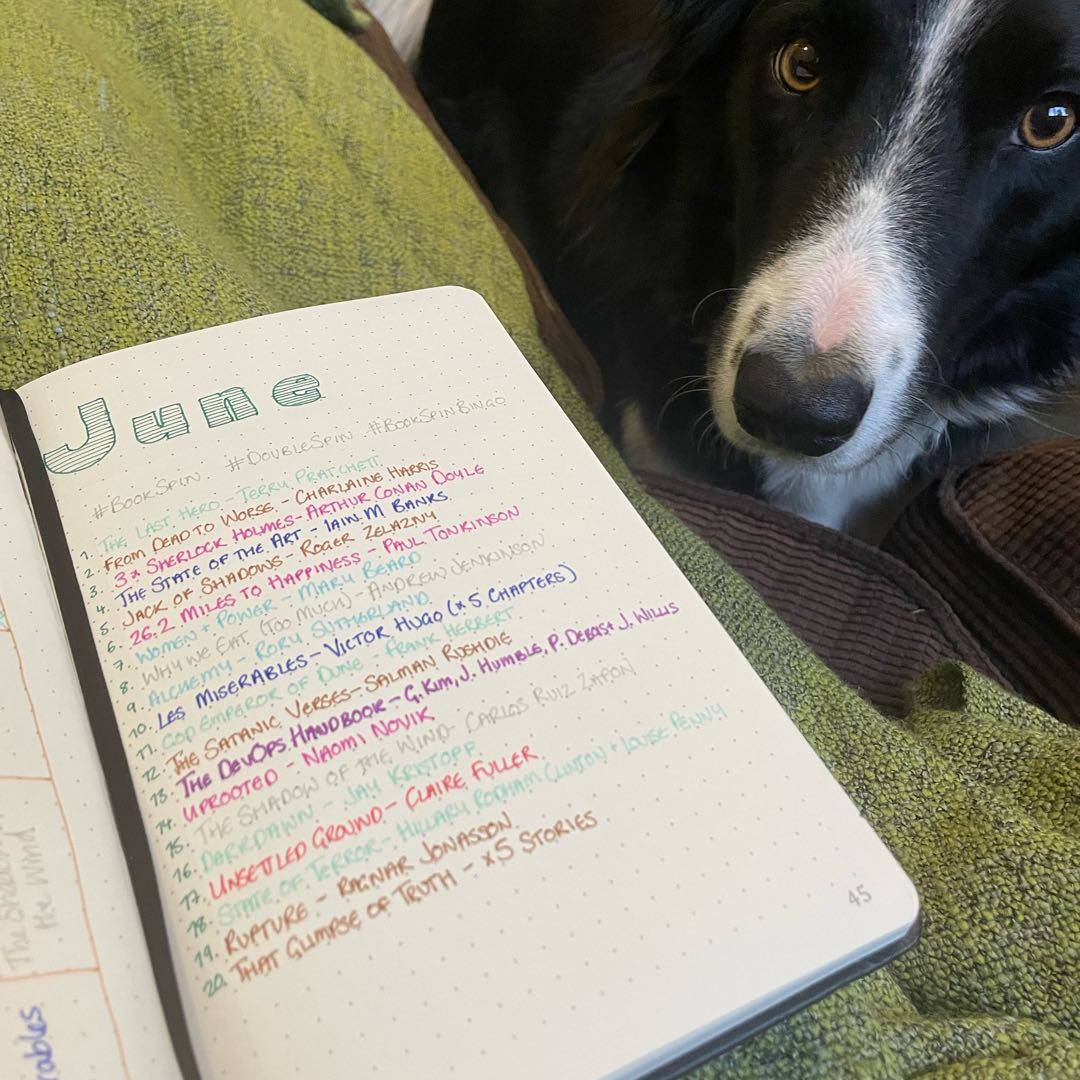 June
#BookSpin #DoubleSpin #BookSpinBingo
1. THE LAST HERO - TERRY PRATCHETT
2. FROM DEAD TO WORSE - CHARLAINE HARRIS
3. 3x SHERLOCK HOLMES - ARTHUR CONAN DOYLE
4. THE STATE OF THE ART - IAIN M BANKS
5. JACK OF SHADOWS - ROGER ZELAZNY
6. 26.2 MILES TO HAPPINESS - PAUL TONKINSON
7. WOMEN + POWER - MARY BEARD
8. WHY WE EAT (TOO MUCH) - ANDREW JENKINSON
9. ALCHEMY - RORY SUTHERLAND
10. LES MISERABLES - VICTOR HUGO (x5 CHAPTERS)
11. GOD EMPEROR OF DUNE - FRANK HERBERT
12. THE SATANIC VERSES - SALMAN RUSHDIE
13. THE DEVOPS HANDBOOK - G. KIM, J. HUMBLE, P. DEBOIS + J. WILLIS
14. UPROOTED - NAOMI NOVIK
15. THE SHADOW OF THE WIND - CARLOS RUIZ ZAFON
16. DARKDAWN - JAY KRISTOFF
17. UNSETTLED GROUND - CLAIRE FULLER
18. STATE OF TERROR - HILLARY RODHAM CLINTON + LOUISE PENNY
19. RUPTURE - RAGNAR JONASSON
20. THAT GLIMPSE OF TRUTH - x5 STORIES
45
the wind
rables